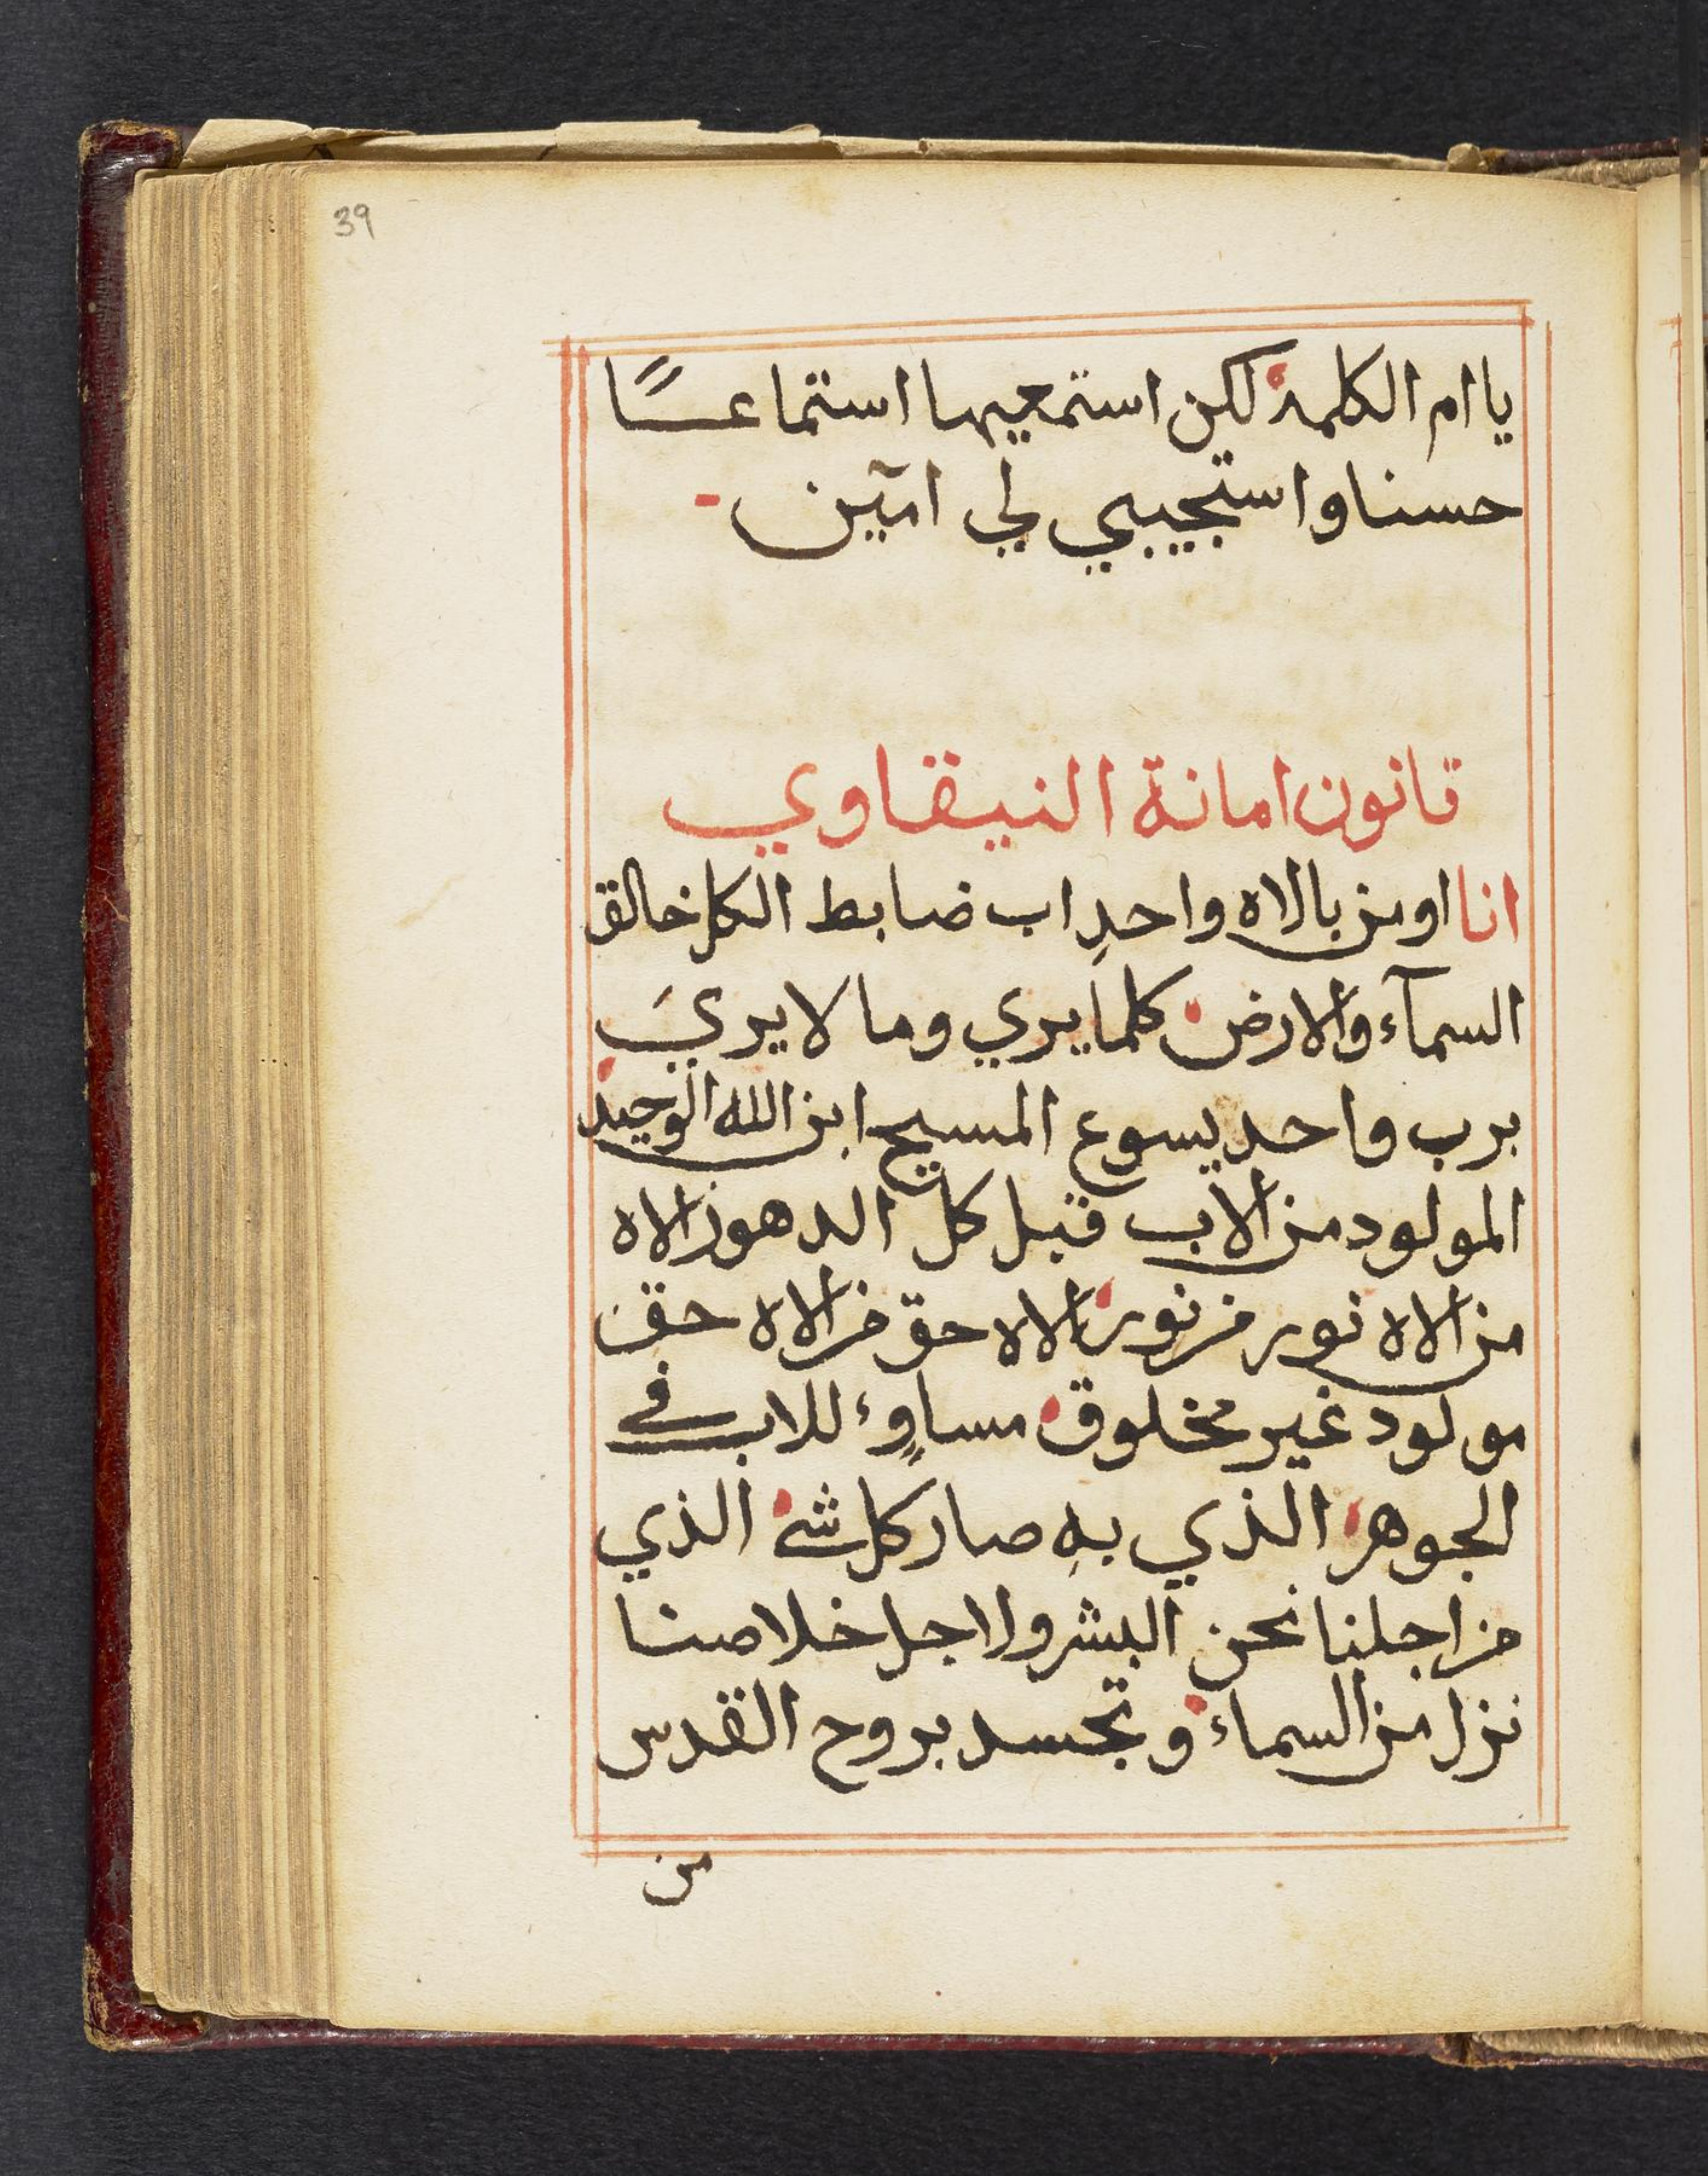 39
يا ام الكلمة لكن استمعيها استماعًا
حسنا واستجيبي لي امين
قانون امانة النيقاوي
انا اومن بالاه واحدٍ اب ضابط الكل خالق
السمآء والارض كلما يري وما لا يريَ
برب واحد يسوع المسيح ابن الله الوحيد
المولود من الاب قبل كل الدهور الاه
من الاه نور من نور الاه حق من الاه حق
مولود غير مخلوق مساوٍء للاب في
الجوهر الذي بهِ صار كل شئ الذي
من اجلنا نحن البشر ولاجل خلاصنا
نزل من السماء وتجسد بروح القدس
من